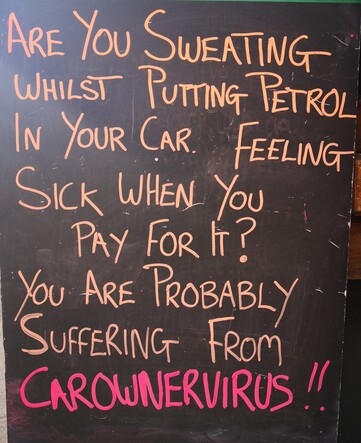 ARE YOU SWEATING
WHILST PUTTING PETROL
IN YOUR CAR. FEELING
SICK WHEN YOU
PAY FOR IT?
YOU ARE PROBABLY
SUFFERING FROM
CAROWNERVIRUS!!